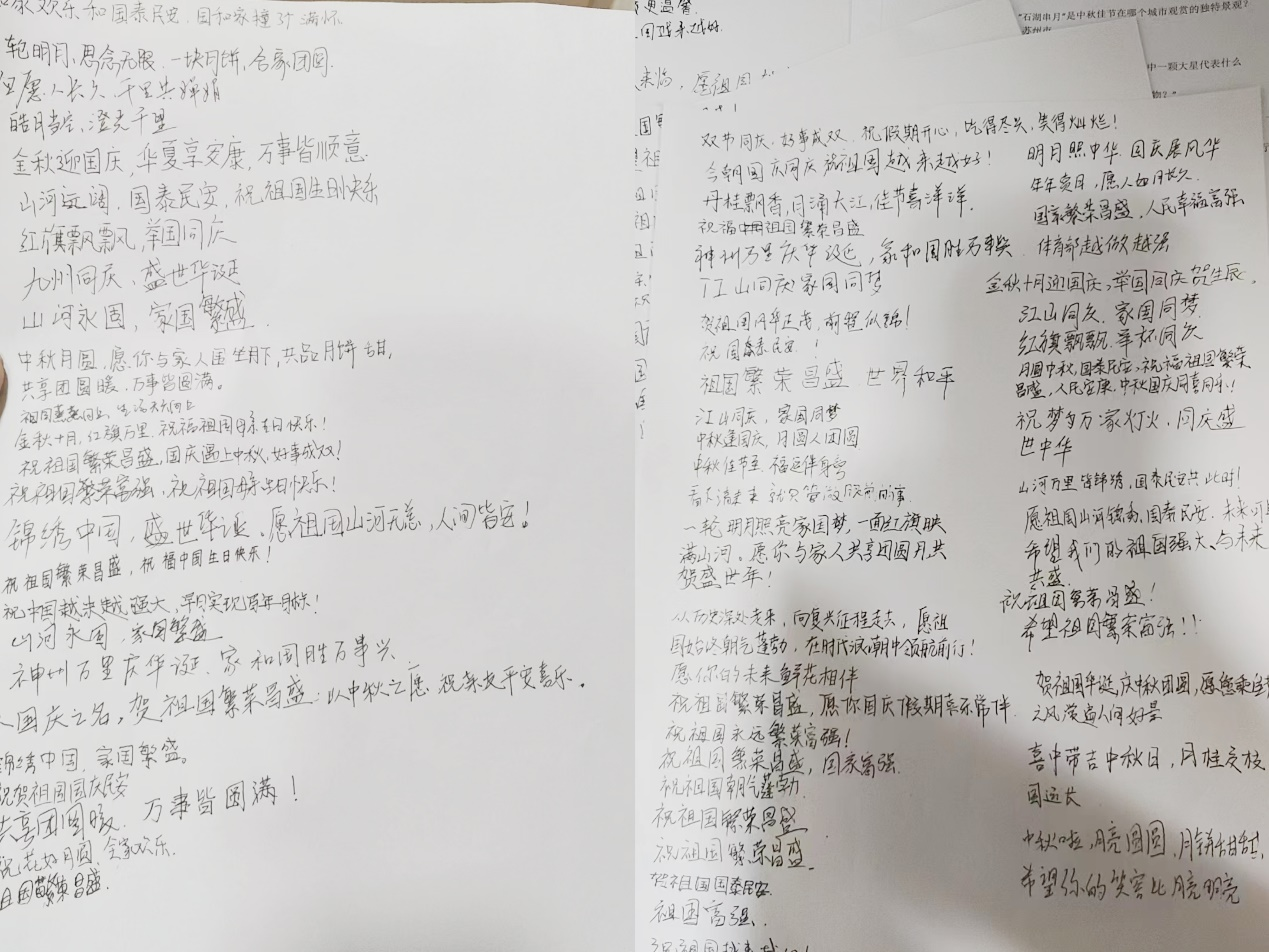 家欢乐和国泰民安，国和家撞了个满怀
轮明月，思念无限，一块月饼，合家团圆
但愿人长久，千里共婵娟
皓月当空，澄光千里
金秋迎国庆，华夏享安康，万事皆顺意
山河远阔，国泰民安，祝祖国生日快乐
红旗飘飘，举国同庆
九州同庆，盛世华诞
山河永固，家国繁盛
中秋月圆，愿你与家人围坐月下，共品月饼甜，
共享团圆暖，万事皆圆满。
金秋十月，红旗万里，祝福祖国母亲生日快乐！
祝祖国繁荣昌盛，国庆遇上中秋，好事成双！
祝祖国繁荣富强，祝祖国母亲生日快乐！
锦绣中国，盛世华诞、愿祖国山河无恙，人间皆安！
祝祖国繁荣昌盛，祝福中国生日快乐！
祝中国越来越强大，早日实现百年目标！
山河永固，家国繁盛
神州万里庆华诞、家和国胜万事兴
国庆之名，贺祖国繁荣昌盛：以中秋之愿，祝亲友平安喜乐。
锦绣中国，家国繁盛。
祝贺祖国国庆民安
共享团圆暖，万事皆圆满！
祝花好月圆，全家欢乐.
祖国繁荣昌盛.
更温馨
国越来越好.
来临，愿祖国
"石湖串月"是中秋佳节在哪个城市观赏的独特景观？
苏州市
中一颗大星代表什么
物？"
双节同庆，好事成双，祝假期开心，吃得尽兴，笑得灿烂！
今朝国庆同庆 祝祖国越来越好！
丹桂飘香，月涌大江，佳节喜洋洋.
祝福祖国繁荣昌盛
神州万里庆华诞，家和国胜万事兴
江山同庆 家国同梦
贺祖国风华正茂，前程似锦！
祝国泰民安！
祖国繁荣昌盛 世界和平
江山同庆，家国同梦
中秋逢国庆，月圆人团圆
中秋佳节至，福运伴身旁
看不清未来 就只管做眼前的事
一轮明月照亮家国梦，一面红旗映
满山河。愿你与家人共享团圆月共
贺盛世年！
从历史深处走来，向复兴征程走去，愿祖
国始终朝气蓬勃，在时代浪潮中领航前行！
愿你的未来鲜花相伴
祝祖国繁荣昌盛，愿你国庆假期喜乐常伴.
祝祖国永远繁荣富强！
祝祖国繁荣昌盛，国家富强.
祝祖国朝气蓬勃.
祝祖国繁荣昌盛
祝祖国繁荣昌盛.
贺祖国国泰民安.
祖国富强.
祝祖国越来越好！
明月照中华 国庆展风华
年年赏月，愿人如月长久.
国家繁荣昌盛，人民幸福富强
体育部越做越强
金秋十月迎国庆，举国同庆贺生辰，
江山同庆.家国同梦.
红旗飘飘，举杯同庆
月圆中秋，国泰民安，祝福祖国繁荣
昌盛，人民安康，中秋国庆同喜同乐！
祝梦与万家灯火，同庆盛
世中华
山河万里皆锦绣，国泰民安共此时！
愿祖国山河锦绣，国泰民安.未来可
希望我们的祖国强大、与未来
共盛.
祝祖国繁荣昌盛！
希望祖国繁荣富强！！
贺祖国华诞，庆中秋团圆，愿您乘
人间好景
喜中带吉中秋日，月桂交枝
国运长
中秋啦，月亮圆圆，月饼甜甜，
希望你的笑容比月亮明亮